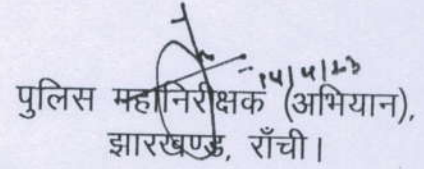 14/4/23
पुलिस महानिरीक्षक (अभियान),
झारखण्ड, राँची।